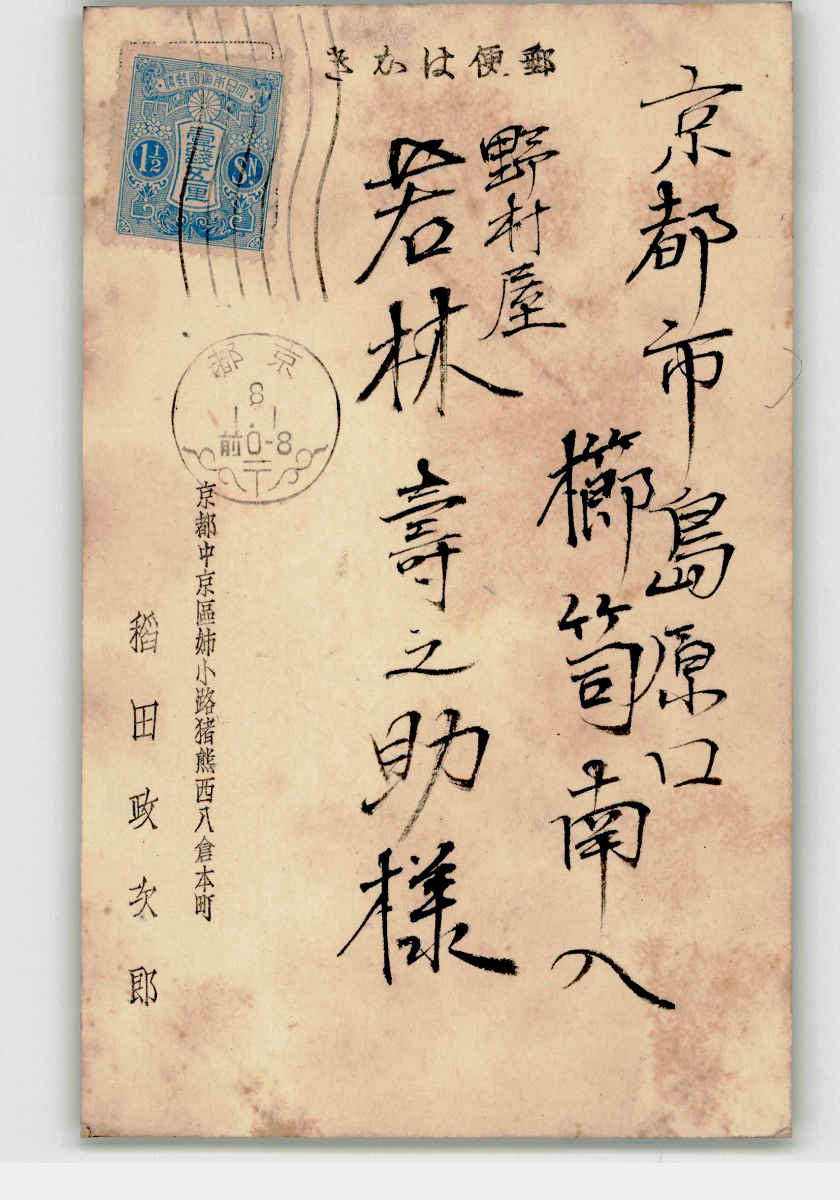 郵便はかき
京都市島原口
櫛笥南入
野村屋
若林壽之助様
大日本帝國郵便
壹錢五厘
1½ SN
京都
8
1.1
前0-8
〒
京都中京區姉小路猪熊西入倉本町
稻田政次郎